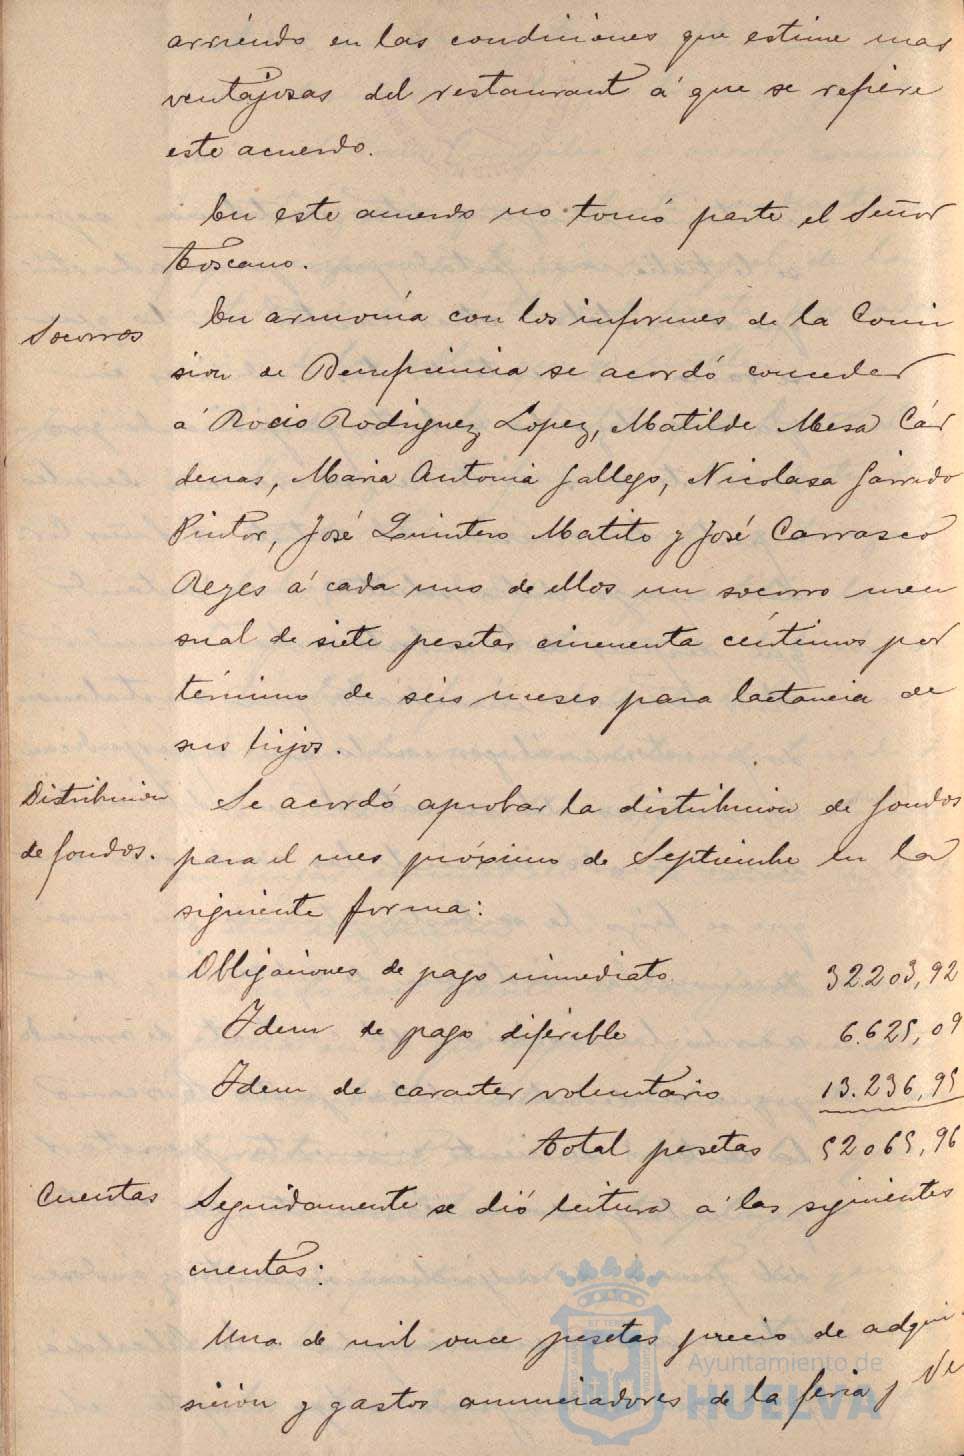 arriendo en las condiciones que estime mas
ventajosas del restaurant á que se refiere
este acuerdo.
En este acuerdo no tomó parte el Señor
Toscano.
Socorros
En armonía con los informes de la Comi
sion de Beneficencia se acordó conceder
á Rocio Rodriguez Lopez, Matilde Mesa Cár
denas, Maria Antonia Gallego, Nicolasa Garrido
Pintor, José Quintero Matito y José Carrasco
Reyes á cada uno de ellos un socorro men
sual de siete pesetas cincuenta céntimos por
término de seis meses para lactancia de
sus hijos.
Distribucion
de fondos.
Se acordó aprobar la distribucion de fondos
para el mes próximo de Septiembre en la
siguiente forma:
Obligaciones de pago inmediato 32.203,92
Idem de pago diferible 6.625,09
Idem de caracter voluntario 13.236,95
Total pesetas 52065,96
Cuentas
Seguidamente se dió leitura á las siguientes
cuentas:
Una de mil once pesetas precio de adqui
sicion y gastos anunciadores de la feria y Ve
Ayuntamiento de
HUELVA